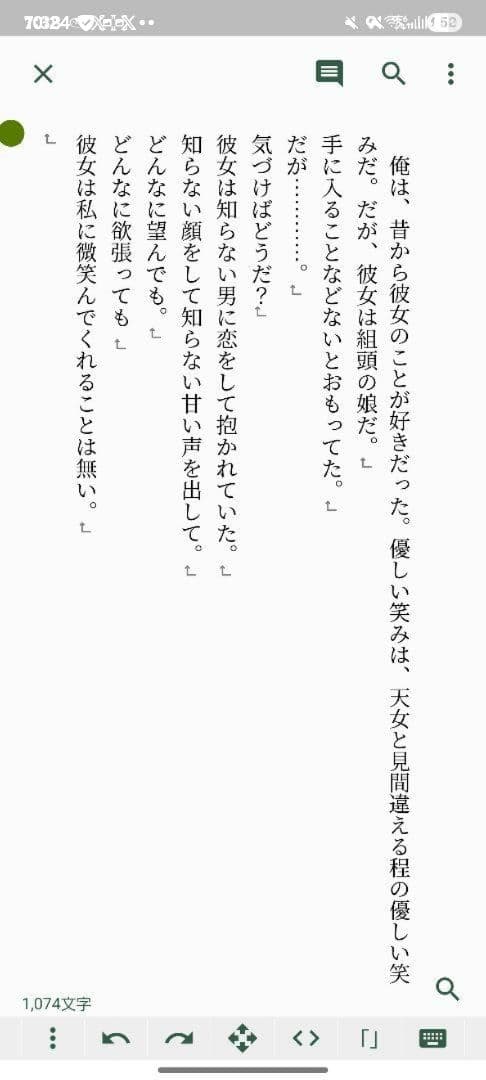 52
俺は、昔から彼女のことが好きだった。優しい笑みは、天女と見間違える程の優しい笑
みだ。だが、彼女は組頭の娘だ。
手に入ることなどないとおもってた。
だが…………。
気づけばどうだ?
彼女は知らない男に恋をして抱かれていた。
知らない顔をして知らない甘い声を出して。
どんなに望んでも。
どんなに欲張っても
彼女は私に微笑んでくれることは無い。
1,074文字
「」